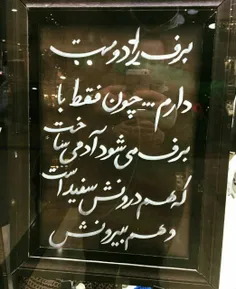 برف را دوست
دارم... چون فقط با
برف می شود آدمی ساخت
که هم درونش سفید است
و هم بیرونش